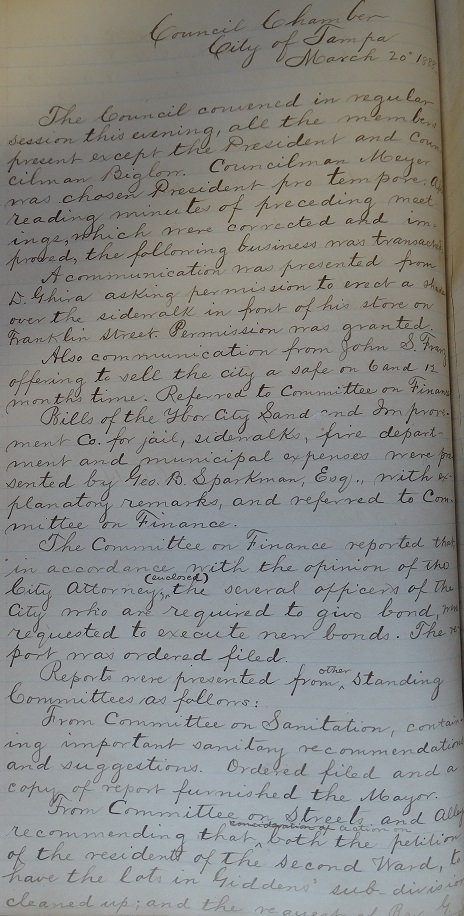 Council Chamber
City of Tampa
March 20" 188
The Council convened in regular
session this evening, all the members
present except the President and Coun
cilman Biglow. Councilman Meyer
was chosen President pro tempore.
reading minutes of preceding meet
ings, which were corrected and im-
proved, the following business was transacted
A communication was presented from
D. Ghira asking permission to erect a
over the sidewalk in front of his store on
Franklin Street. Permission was granted.
Also communication from John S.
offering to sell the city a safe on 6 and 12
months time. Referred to Committee on Finance
Bills of the Ybor City Sand and Improve-
ment Co. for jail, sidewalks, fire depart-
ment and municipal expenses were pre
sented by Geo. B. Sparkman, Esq., with ex-
planatory remarks, and referred to Com-
mittee on Finance.
The Committee on Finance reported that
in accordance with the opinion of the
City Attorney, (enclosed) the several officers of the
City who are required to give bond,
requested to execute new bonds. The re
port was ordered filed.
Reports were presented from other Standing
Committees as follows:
From Committee on Sanitation, contain-
ing important sanitary recommendations
and suggestions. Ordered filed and a
copy of report furnished the Mayor.
From Committee on Streets and Alleys
recommending that consideration of action on both the petition
of the residents of the Second Ward, to
have the lots in Giddens' sub-division
cleaned up; and the request of